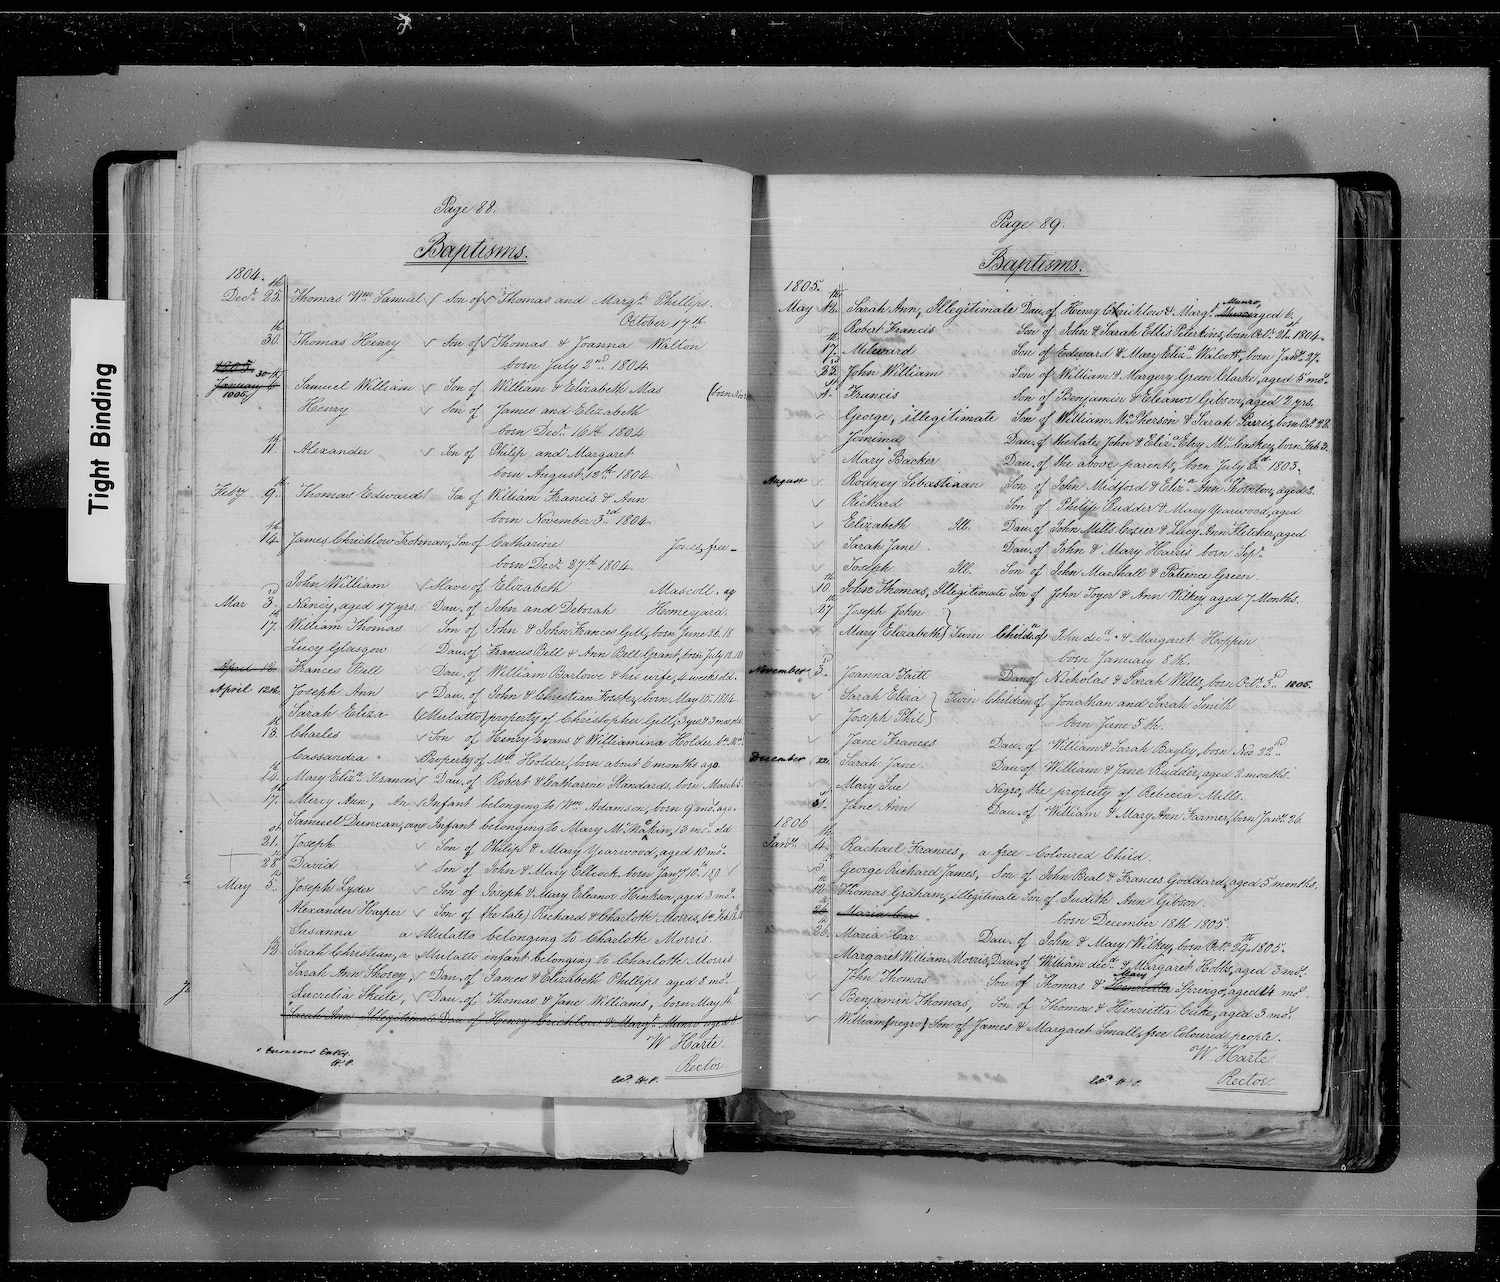 Tight Binding
Page 88.
Baptisms.
1804.
Decr. 25th Thomas Wm Samuel Son of Thomas and Margt. Phillips.
October 17th.
30th Thomas Henry Son of Thomas & Joanna Walton
born July 2nd 1804
1805
January 6 30th Samuel William Son of William & Elizabeth Mas (born Nov
1805.
Henry Son of James and Elizabeth
born Decr. 16th 1804
11th Alexander Son of Philip and Margaret
born August 12th 1804
Feby 9th Thomas Edward Son of William Francis & Ann
born November 3rd 1804
14th James Chrichlow Trotman, Son of Catharine Jones, free
born Decr 27th 1804.
John William Slave of Elizabeth Mascoll. ag
Mar 3rd Nancy, aged 17 yrs. Dau. of John and Deborah Homeyard.
17th William Thomas Son of John & John Frances Gill, born June 26. 18
Lucy Glasgow Dau. of Frances Bell & Ann Bell Grant, born July 12. 18
April 12 Frances Well Dau. of William Barlowe & his wife, 4 weeks old.
April 12th Joseph Ann Dau. of John & Christian Foster, born May 15. 1804
Sarah Eliza (Mulatto) property of Christopher Gill, 3 yrs & 3 mos old
13th Charles Son of Henry Evans & Williamina Holder
Cassandra Property of Mrs Holder, born about 6 months ago
14th Mary Eliza. Frances Dau. of Robert & Catharine Standards, born March 5
17th Mercy Ann, An Infant belonging to Wm. Adamson, born 9 mos. ago.
Samuel Duncan, an Infant belonging to Mary 13 mos. old
21st Joseph Son of Philip & Mary Yearwood, aged 10 mos.
28th David Son of John & Mary Eltcock born Jany 10th 180
May 5th Joseph Lyder Son of Joseph & Mary Eleanor Hinkson, aged 3 mos.
Alexander Harper Son of (the late) Richard & Charlotte Morris, bn Feb
Susanna a Mulatto belonging to Charlotte Morris
12th Sarah Christian, a Mulatto infant belonging to Charlotte Morris
Sarah Ann Thorey, Dau. of James & Elizabeth Phillips aged 8 mos.
Lucretia Skeete, Dau. of Thomas & Jane Williams, born May
Sarah Ann Illegitimate Dau of Henry Crichlow & Margt. Munro aged
W Harte
Rector
Erroneous Entry.
H.P.
Exd. H.P.
Page 89.
Baptisms.
1805.
May 12th Sarah Ann, Illegitimate Dau. of Henry Chrichlow & Margt. Munro, aged 6.
Robert Francis Son of John & Sarah Ellis Peterkins, born Octr. 21st 1804.
17th Milward Son of Edward & Mary Eliza Walcott, born Jany. 27.
23rd John William Son of William & Margery Green Clarke, aged 5 mos.
Francis Son of Benjamin & Eleanor Gibson, aged 2 yrs.
George, illegitimate Son of William McPherson & Sarah Parris, born Oct. 28.
Jemima Dau. of the late John & Eliza. Elvy McCaskey, born Feb 3.
Mary Backer Dau. of the above parents, born July 1803.
August Rodney Sebastiaan Son of John Midford & Eliza. Ann Thornton, aged 2.
Rickard Son of Philip Rudder & Mary Yearwood, aged
Elizabeth Ill. Dau. of John Mills Cozier & Lucy Ann Fletcher, aged
Sarah Jane Dau. of John & Mary Harris born Sepr.
Joseph Ill. Son of John Marshall & Patience Green.
10th John Thomas, Illegitimate Son of John Toyer & Ann Wilkey aged 7 Months.
27th Joseph John
Mary Elizabeth } Twin Childn. of John decd. & Margaret Hoppin
born January 8th.
November 3rd Joanna Taitt Dau of Nicholas & Sarah Wills, born Octr. 3rd 1805.
Sarah Eliza
Joseph Phil } Twin Children of Jonathan and Sarah Smith
born June 5th.
Jane Frances Dau. of William & Sarah Bayley, born Nov 22nd
December Sarah Jane Dau of William & Jane Rudder, aged 2 months
Mary Sue Negro, the property of Rebecca Mills.
Jane Ann Dau. of William & Mary Ann Farmer, born Jany. 26
1806
Jany. 4th Rachael Frances, a free Coloured Child.
5th George Richard James, Son of John Beal & Frances Goddard, aged 5 months.
12th Thomas Graham, illegitimate Son of Judith Ann Gibson
Maria Car born December 18th 1805
26 Maria Car Dau. of John & Mary Wilkey, born Octr. 29th 1805.
Margaret William Morris, Dau. of William decd. & Margaret Hobbs, aged 3 mos.
John Thomas Son of Thomas & Henrietta Mary Springo, aged 14 mos.
Benjamin Thomas, Son of Thomas & Henrietta Cake, aged 3 mos.
William (negro) Son of James & Margaret Small, free Coloured people.
W Harte
Rector
Exd. H.P.